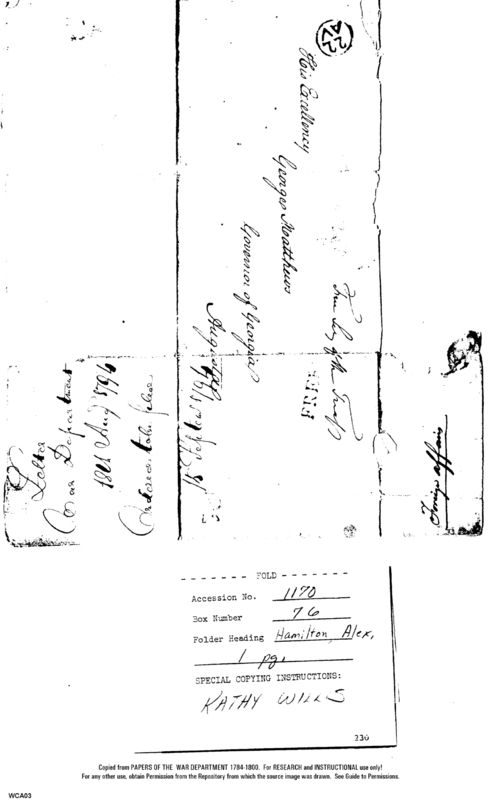 22
AV
His Excellency
George Matthews
Governor of Georgia
Augusta
FREE
Letter
War Department
18th Aug 1794
Order to be filed
18 Septem 1794
Foreign affairs
- - - - - - - FOLD - - - - - - -
Accession No. 1170
Box Number 76
Folder Heading Hamilton, Alex,
1 pg.
SPECIAL COPYING INSTRUCTIONS:
KATHY WILLS
230
Copied from PAPERS OF THE WAR DEPARTMENT 1784-1800. For RESEARCH and INSTRUCTIONAL use only!
For any other use, obtain Permission from the Repository from which the source image was drawn. See Guide to Permissions.
WCA03